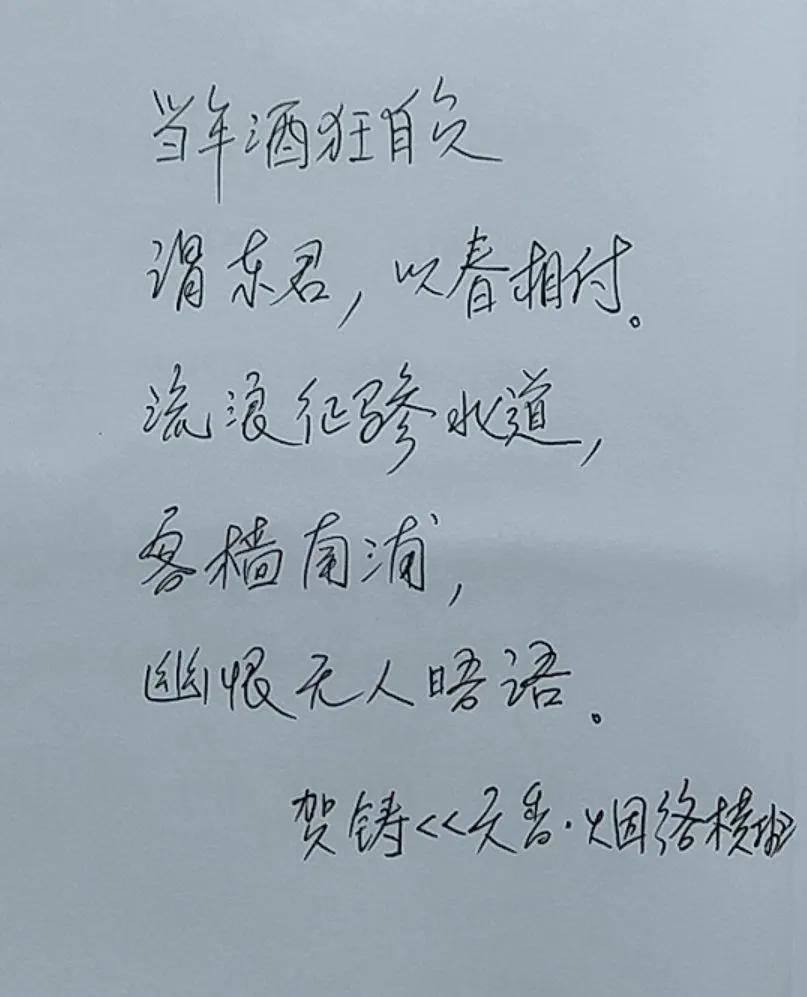 当年酒狂自负
谓东君，以春相付。
流浪征骖水道，
客樯南浦，
幽恨无人晤语。
贺铸<<天香·烟络横